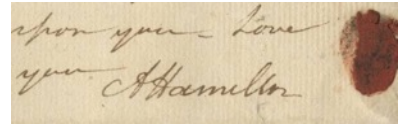 upon you – Love
your AHamilton